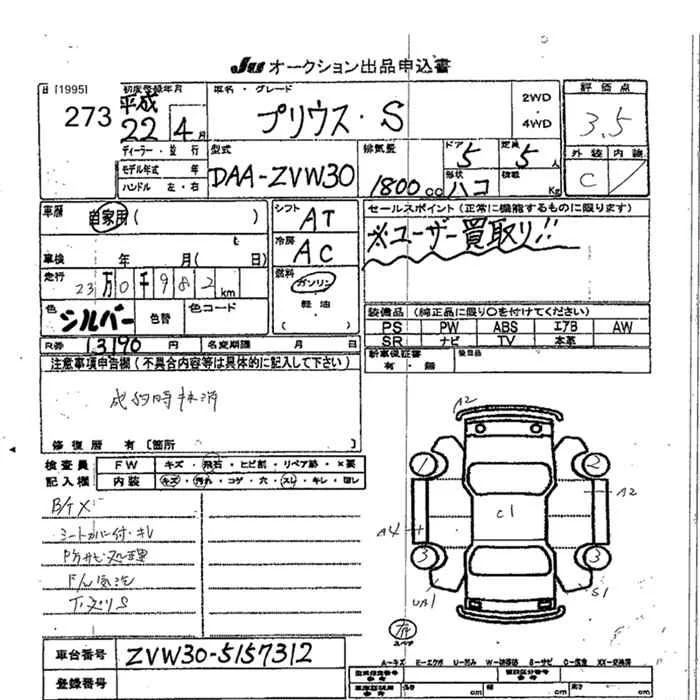 JU オークション出品申込書
[1995]
273
初度登録年月
平成
22 4月
車名・グレード
プリウス・S
2WD
・
4WD
評価点
3.5
外装 内装
C
ディーラー・並行
モデル年式 年
ハンドル 左・右
型式
DAA-ZVW30
排気量
1800cc
ドア
5
定員
5人
形状
ハコ
積載
Kg
車歴
自家用( )
シフト
AT
セールスポイント(正常に機能するものに限ります)
※ユーザー買取り!!
車検 年 月( 日)
冷房
AC
走行
23万0千982km
燃料
ガソリン
軽油
( )
色
シルバー
色替
色コード
装備品(純正品に限り〇を付けてください)
PS PW ABS エアB AW
SR ナビ TV 本革
R券 13190円
名変期限 月 日
新車保証書
有・無
後日品
注意事項申告欄(不具合内容等は具体的に記入して下さい)
修復歴 有[箇所 ]
検査員
記入欄
FW キズ・飛石・ヒビ割・リペア跡・X要
内装 キズ・汚れ・コゲ・穴・スレ・キレ・切レ
シートカバー付・キレ
A2
1 2
A2
C1
A4
3 3
UA1
S1
車台番号
ZVW30-5157312
登録番号
A-キズ E-エクボ U-凹み W-補修跡 S-サビ C-腐食 XX-交換済
cm cm cm